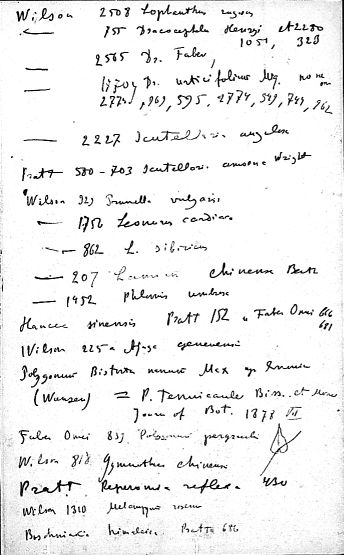 Wilson 2508 Lophanthus rugosus
— 755 Dracocephalum Henryi et 2280
1051, 323
— 2565 Dr. Faberi
— Dr. urticifolium Miq.
2774, 963, 595, 2774, 549, 749, 962
— 2227 Scutellaria angulosa
Pratt 580-703 Scutellaria Wright
Wilson 323 Prunella vulgaris
— 1756 Leonurus cardiaca
— 862 L. sibiricus
— 207 Lamium chinense Benth
— 1452 Phlomis umbrosa
Hancea sinensis Pratt 152 Faber Omei 616
681
Wilson 225a Ajuga genevensis
Polygonum Bistorta Max
(Wansen) = P. tenuicaule Biss. et Moore
Journ of Bot. 1878 VII
Faber Omei 833 Polygonum
Wilson 818 Gymnotheca chinensis
Pratt Peperomia reflexa 430
Wilson 1310 Melampyrum roseum
Boschniakia himalaica Pratt 686